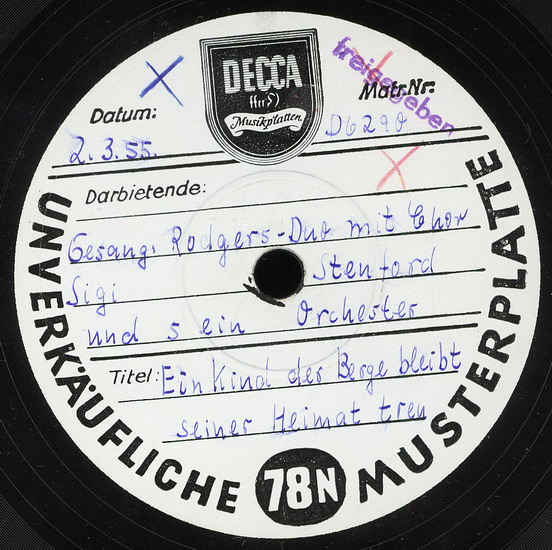 DECCA
ffrr
Musikplatten
freigegeben
Datum:
Matr.Nr:
2.3.55.
D6290
Darbietende:
Gesang: Rodgers-Duo mit Chor
Sigi Stenford
und sein Orchester
Titel: Ein Kind der Berge bleibt
seiner Heimat treu
UNVERKÄUFLICHE 78N MUSTERPLATTE